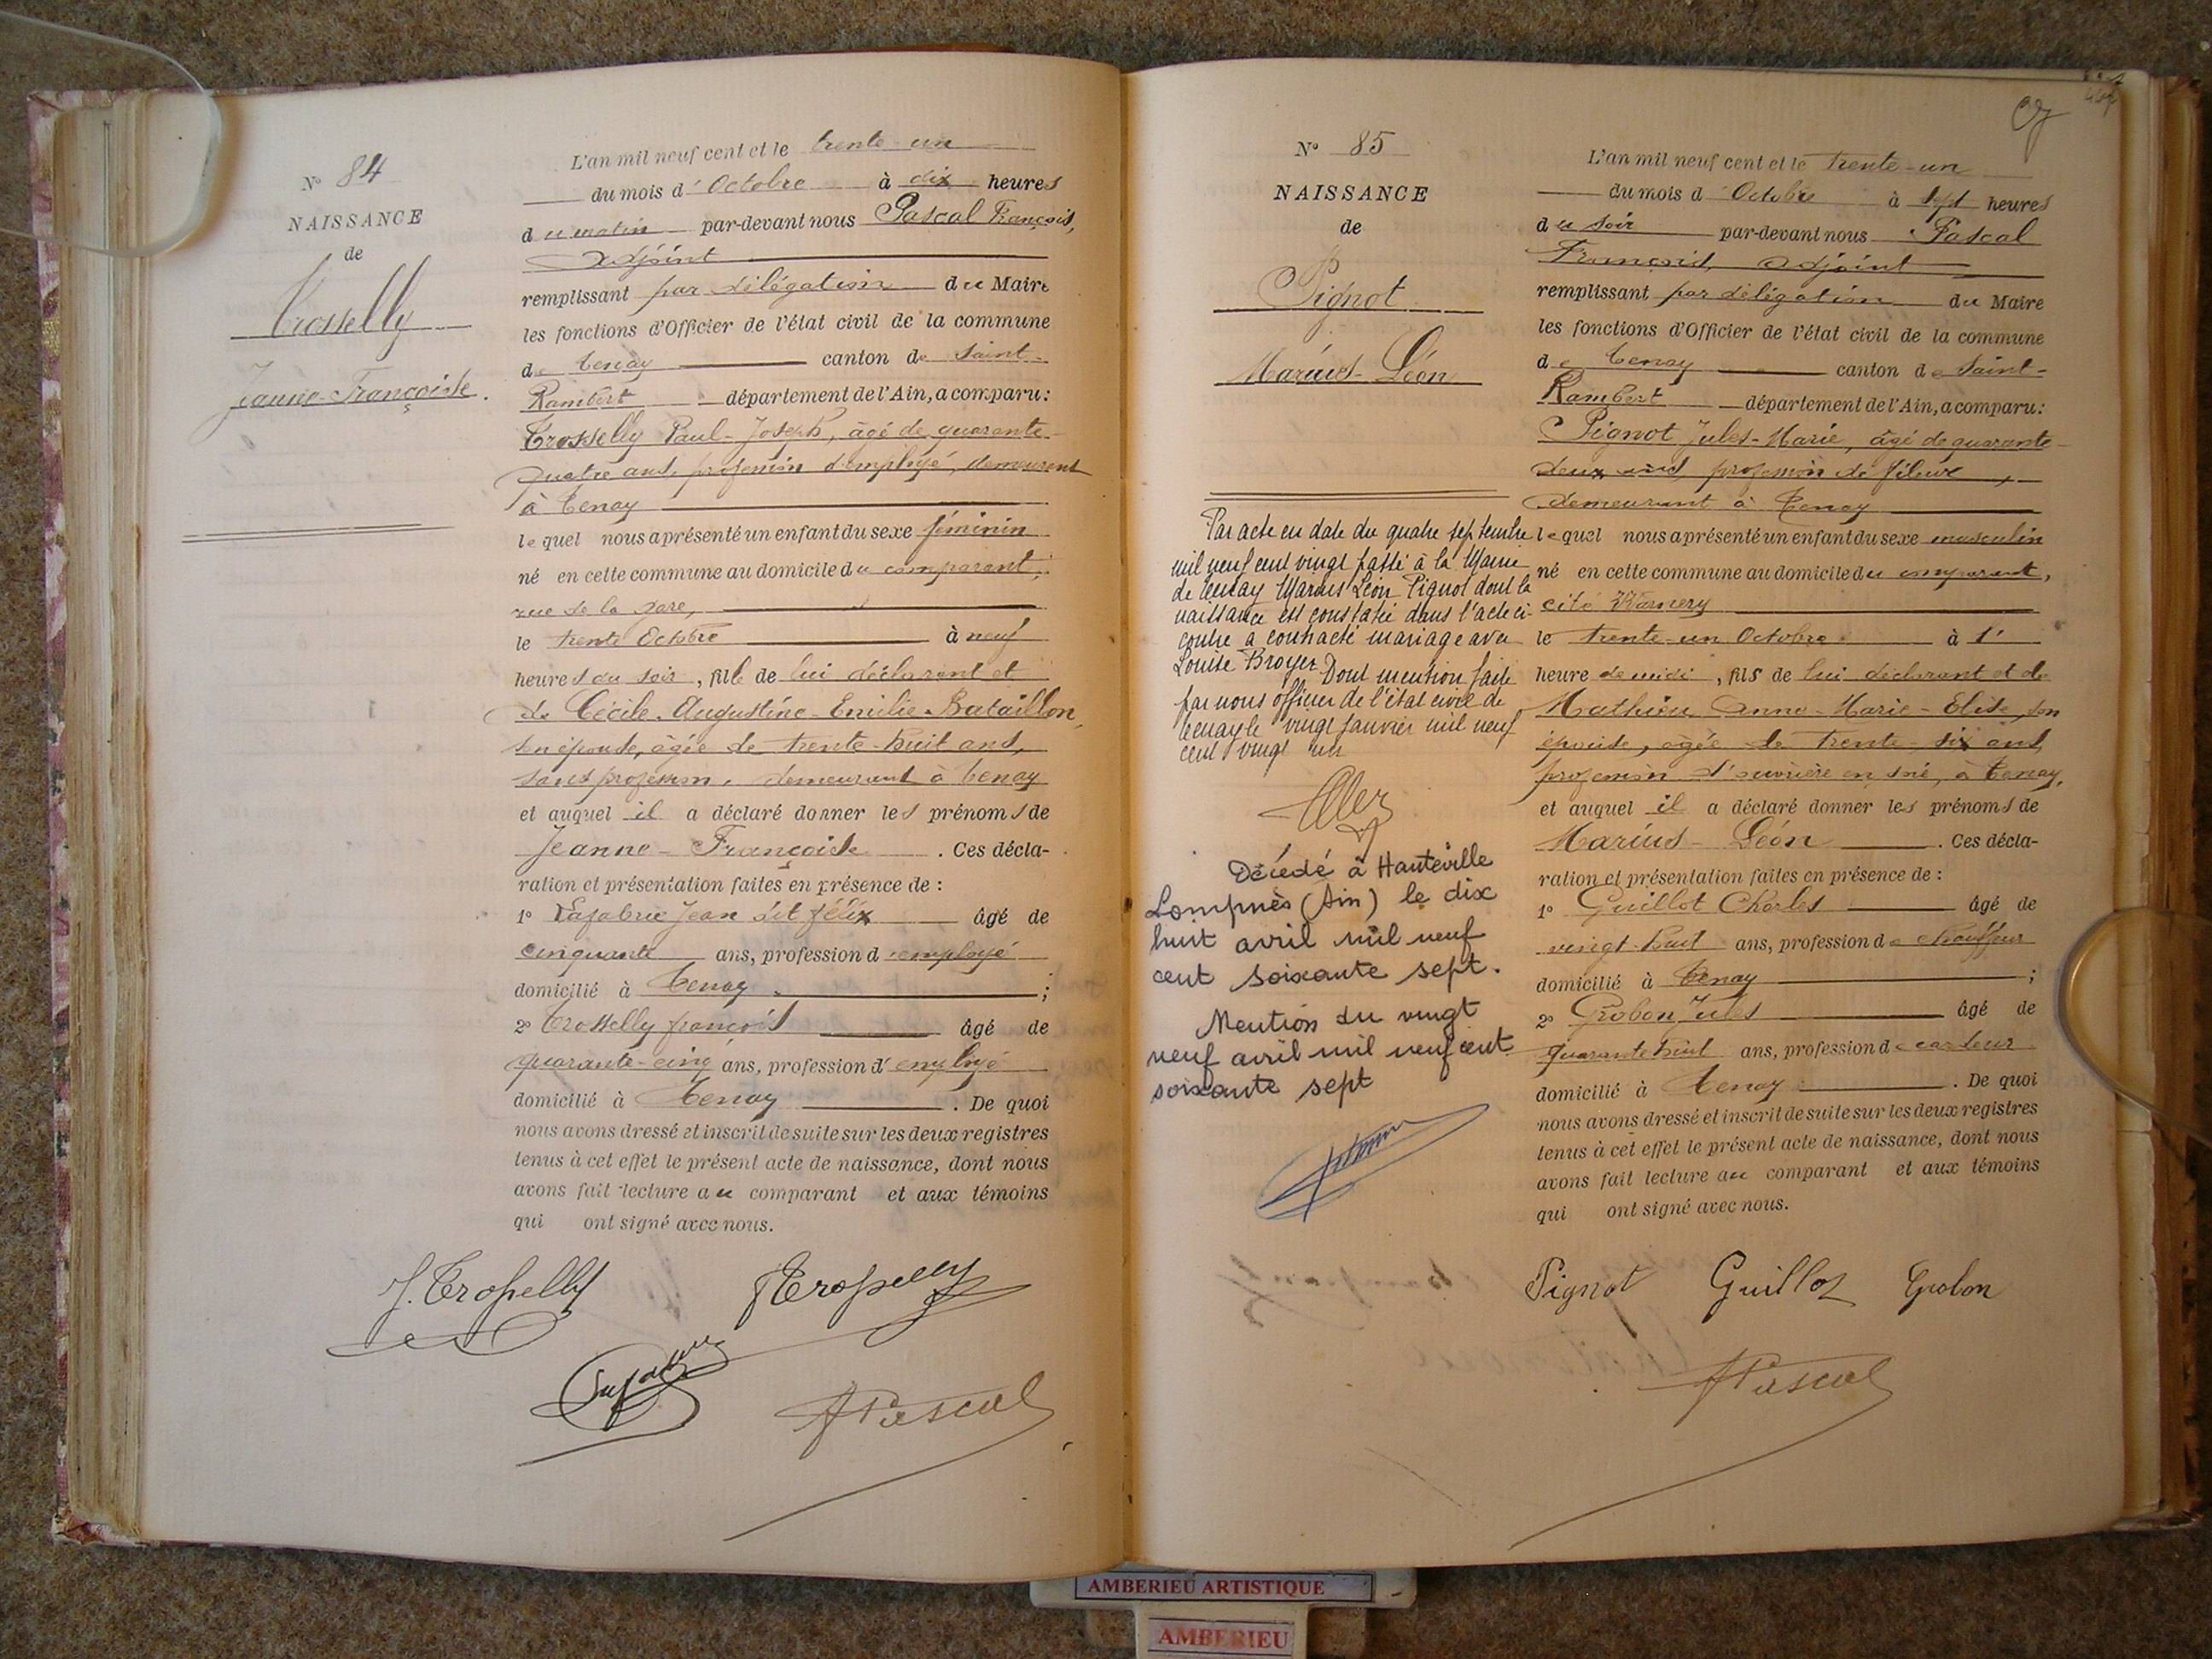 N° 84
NAISSANCE
de
Trosselly
Jeanne-Françoise.
L'an mil neuf cent et le trente-un
du mois d'Octobre à dix heures
du matin par-devant nous Pascal François,
Adjoint
remplissant par délégation du Maire
les fonctions d'Officier de l'état civil de la commune
de Tenay canton de Saint-
Rambert département de l'Ain, a comparu:
Trosselly Paul-Joseph, âgé de quarante-
quatre ans, profession d'employé, demeurant
à Tenay
lequel nous a présenté un enfant du sexe féminin
né en cette commune au domicile du comparant,
rue de la gare,
le trente Octobre à neuf
heures du soir, fille de lui déclarant et
de Cécile-Augustine-Emilie Bataillon,
son épouse, âgée de trente-huit ans,
sans profession, demeurant à Tenay
et auquel il a déclaré donner les prénoms de
Jeanne-Françoise. Ces décla-
ration et présentation faites en présence de :
1° Lafabrie Jean dit félix âgé de
cinquante ans, profession d'employé
domicilié à Tenay ;
2° Trosselly françois âgé de
quarante-cinq ans, profession d'employé
domicilié à Tenay . De quoi
nous avons dressé et inscrit de suite sur les deux registres
tenus à cet effet le présent acte de naissance, dont nous
avons fait lecture au comparant et aux témoins
qui ont signé avec nous.
J. Trosselly Trosselly
Pascal
N° 85
NAISSANCE
de
Pignot
Marius-Léon
Par acte en date du quatre septembre
mil neuf cent vingt passé à la Mairie
de Tenay Marius Léon Pignot dont la
naissance est constatée dans l'acte ci-
contre a contracté mariage avec
Louise Broyer Dont mention faite
par nous officier de l'état civil de
Tenay le vingt janvier mil neuf
cent vingt un
Décédé à Hauteville
Lompnès (Ain) le dix
huit avril mil neuf
cent soixante sept.
Mention du vingt
neuf avril mil neuf cent
soixante sept
L'an mil neuf cent et le trente-un
du mois d'Octobre à sept heures
du soir par-devant nous Pascal
François, adjoint
remplissant par délégation du Maire
les fonctions d'Officier de l'état civil de la commune
de Tenay canton de Saint-
Rambert département de l'Ain, a comparu:
Pignot Jules-Marie, âgé de quarante-
deux ans, profession de fileur,
demeurant à Tenay
lequel nous a présenté un enfant du sexe masculin
né en cette commune au domicile du comparant,
cité Warnery
le trente-un Octobre à 1'
heure de midi, fils de lui déclarant et de
Mathieu Anne-Marie-Elise, son
épouse, âgée de trente-six ans,
profession d'ouvrière en soie, à Tenay,
et auquel il a déclaré donner les prénoms de
Marius-Léon . Ces décla-
ration et présentation faites en présence de :
1° Guillot Charles âgé de
vingt-huit ans, profession de chauffeur
domicilié à Tenay ;
2° Grobon Jules âgé de
quarante huit ans, profession de cardeur
domicilié à Tenay . De quoi
nous avons dressé et inscrit de suite sur les deux registres
tenus à cet effet le présent acte de naissance, dont nous
avons fait lecture au comparant et aux témoins
qui ont signé avec nous.
Pignot Guillot Grobon
Pascal
AMBERIEU ARTISTIQUE
AMBERIEU